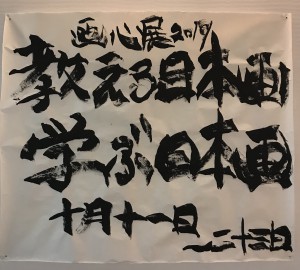 画心展2019
教える日本画
学ぶ日本画
十月十一日